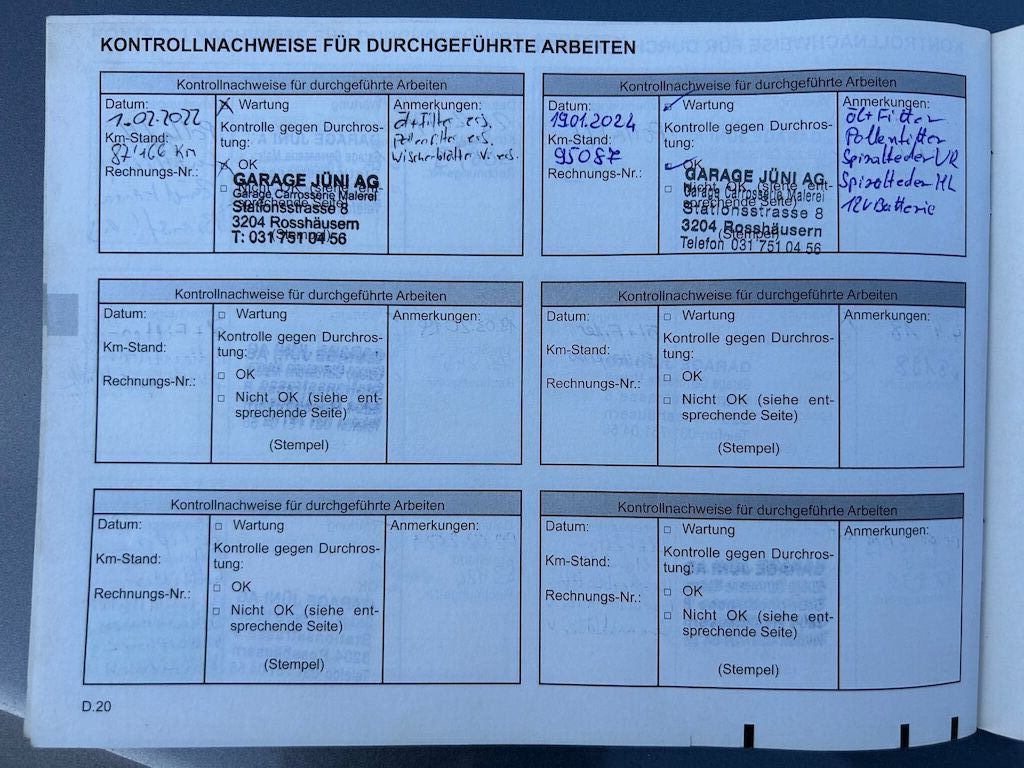 KONTROLLNACHWEISE FÜR DURCHGEFÜHRTE ARBEITEN
Kontrollnachweise für durchgeführte Arbeiten
Datum:
1.02.2022
Km-Stand:
87'166 Km
Rechnungs-Nr.:
Wartung
Kontrolle gegen Durchros-
tung:
OK
Nicht OK (siehe ent-
sprechende Seite)
(Stempel)
GARAGE JÜNI AG
Garage Carrosserie Malerei
Stationsstrasse 8
3204 Rosshäusern
T: 031 751 04 56
Anmerkungen:
öl+Filter ers.
Pollenfilter ers.
Wischerblätter V. ers.
Kontrollnachweise für durchgeführte Arbeiten
Datum:
19.01.2024
Km-Stand:
95087
Rechnungs-Nr.:
Wartung
Kontrolle gegen Durchros-
tung:
OK
Nicht OK (siehe ent-
sprechende Seite)
(Stempel)
GARAGE JÜNI AG
Garage Carrosserie Malerei
Stationsstrasse 8
3204 Rosshäusern
Telefon 031 751 04 56
Anmerkungen:
Öl+Filter
Pollenfilter
Spiralfeder VR
Spiralfeder HL
12V Batterie
Kontrollnachweise für durchgeführte Arbeiten
Datum:
Km-Stand:
Rechnungs-Nr.:
Wartung
Kontrolle gegen Durchros-
tung:
OK
Nicht OK (siehe ent-
sprechende Seite)
(Stempel)
Anmerkungen:
Kontrollnachweise für durchgeführte Arbeiten
Datum:
Km-Stand:
Rechnungs-Nr.:
Wartung
Kontrolle gegen Durchros-
tung:
OK
Nicht OK (siehe ent-
sprechende Seite)
(Stempel)
Anmerkungen:
Kontrollnachweise für durchgeführte Arbeiten
Datum:
Km-Stand:
Rechnungs-Nr.:
Wartung
Kontrolle gegen Durchros-
tung:
OK
Nicht OK (siehe ent-
sprechende Seite)
(Stempel)
Anmerkungen:
Kontrollnachweise für durchgeführte Arbeiten
Datum:
Km-Stand:
Rechnungs-Nr.:
Wartung
Kontrolle gegen Durchros-
tung:
OK
Nicht OK (siehe ent-
sprechende Seite)
(Stempel)
Anmerkungen:
D.20